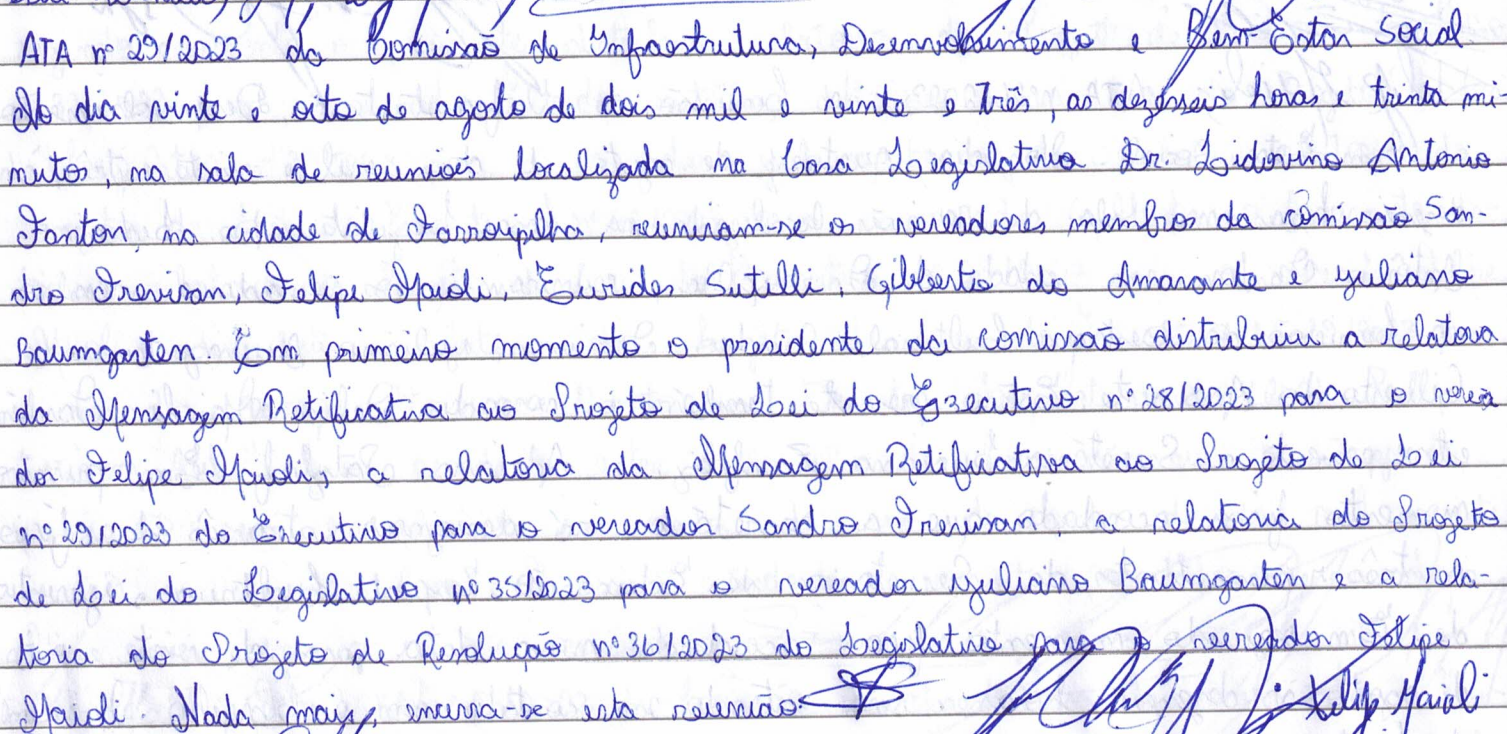 ATA nº 29/2023 da Comissão de Infraestrutura, Desenvolvimento e Bem-Estar Social
No dia vinte e oito de agosto de dois mil e vinte e três, as dezesseis horas e trinta mi-
nutos, na sala de reuniões localizada na Casa Legislativa Dr. Lidovino Antonio
Fanton, na cidade de Farroupilha, reuniram-se os vereadores membros da comissão San-
dro Trevisan, Felipe Maioli, Eurides Sutilli, Gilberto do Amarante e Juliano
Baumgarten. Em primeiro momento o presidente da comissão distribuiu a relatoria
da Mensagem Retificativa ao Projeto de Lei do Executivo nº 28/2023 para o verea
dor Felipe Maioli, a relatoria da Mensagem Retificativa ao Projeto de Lei
nº 29/2023 do Executivo para o vereador Sandro Trevisan, a relatoria do Projeto
de Lei do Legislativo nº 35/2023 para o vereador Juliano Baumgarten e a rela-
toria do Projeto de Resolução nº 36/2023 do Legislativo para o vereador Felipe
Maioli. Nada mais, encerra-se esta reunião. Felipe Maioli